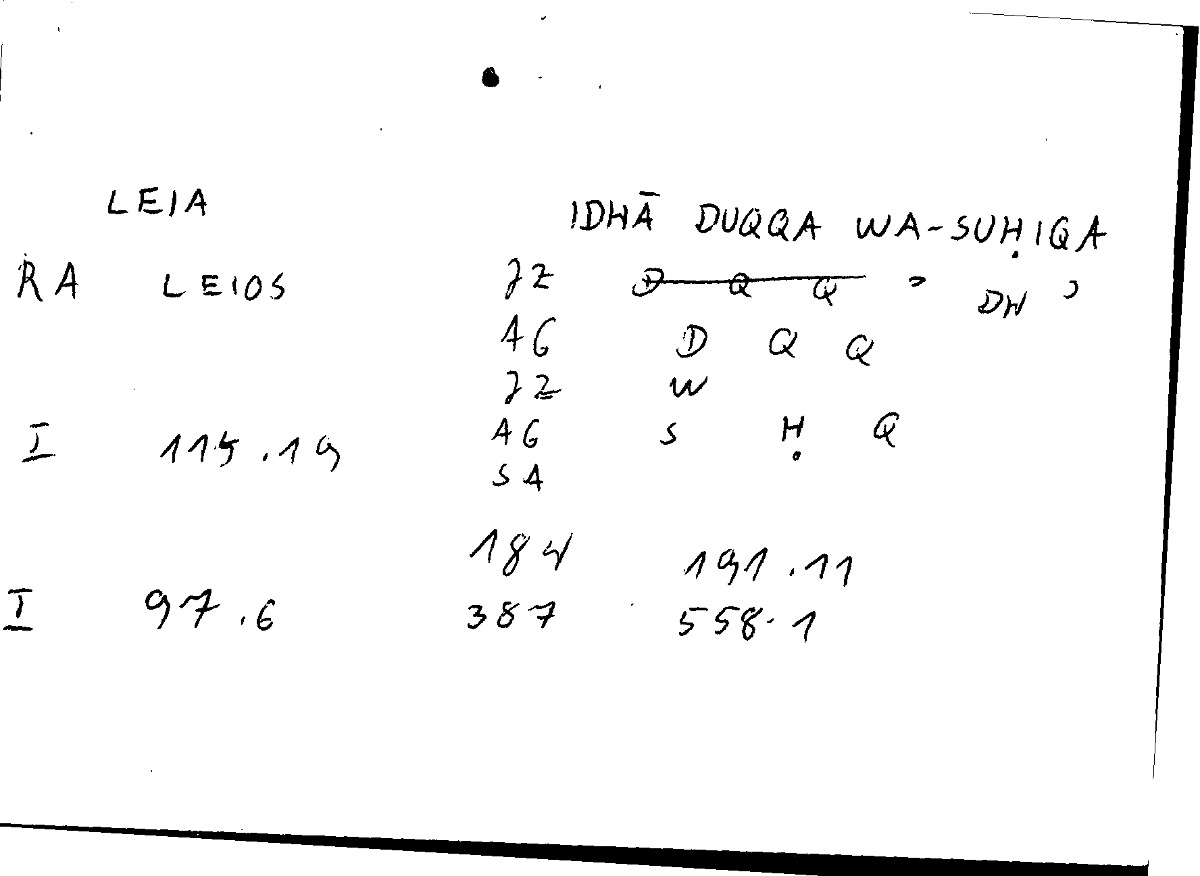 LEIA IDHĀ DUQQA WA-SUḤIQA
RA LEIOS JZ D̶ Q̶ Q̶ ʾ DH ʾ
AG D Q Q
JZ W
I 115.19 AG S Ḥ Q
SA
184 191.11
I 97.6 387 558.1